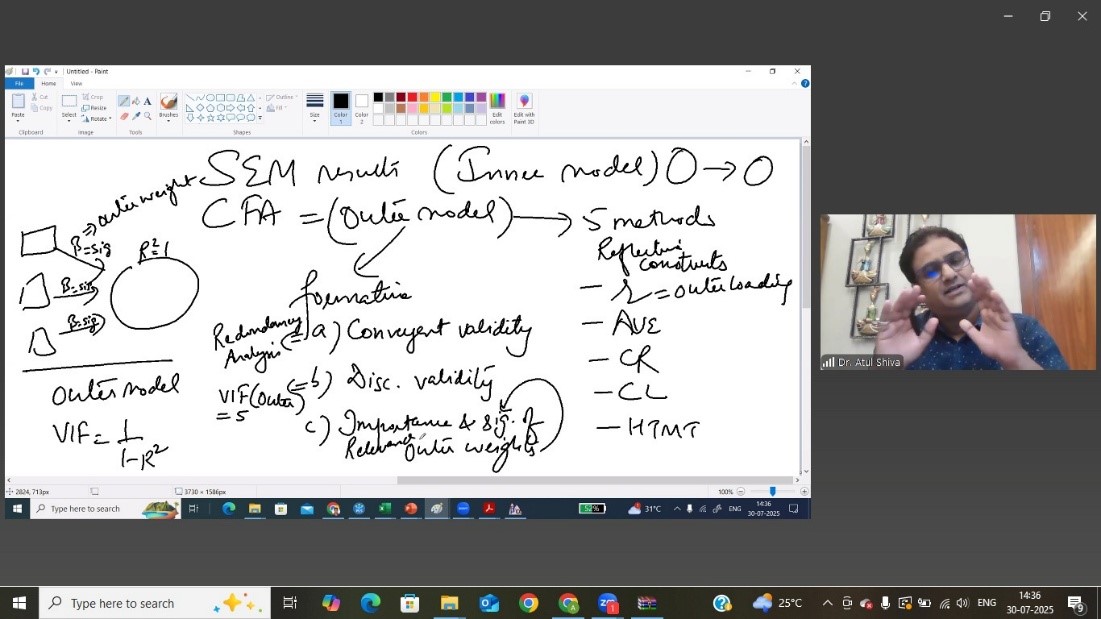 Untitled - Paint
File
Home
View
Cut
Copy
Paste
Clipboard
Crop
Resize
Rotate
Select
Image
Tools
Brushes
Shapes
Outline
Fill
Size
Color 1
Color 2
Colors
Edit colors
Edit with Paint 3D
SEM results (Inner model) O → O
CFA = (Outer model) → 5 methods
Reflective constructs
- λ = outer loading
- AVE
- CR
- CL
- HTMT
⇒ outer weight
β = sig
β = sig
β = sig
R² = 1
Outer model
VIF = 1
1-R²
formative
Redundancy Analysis
a) Convergent validity
VIF (Outer) = 5
b) Disc. validity
c) Importance & sig. of
Relevance Outer weights
2824, 713px
3730 × 1586px
100%
Type here to search
52%
31°C
ENG
14:36
30-07-2025
Dr. Atul Shiva
Type here to search
25°C
ENG
14:36
30-07-2025
9